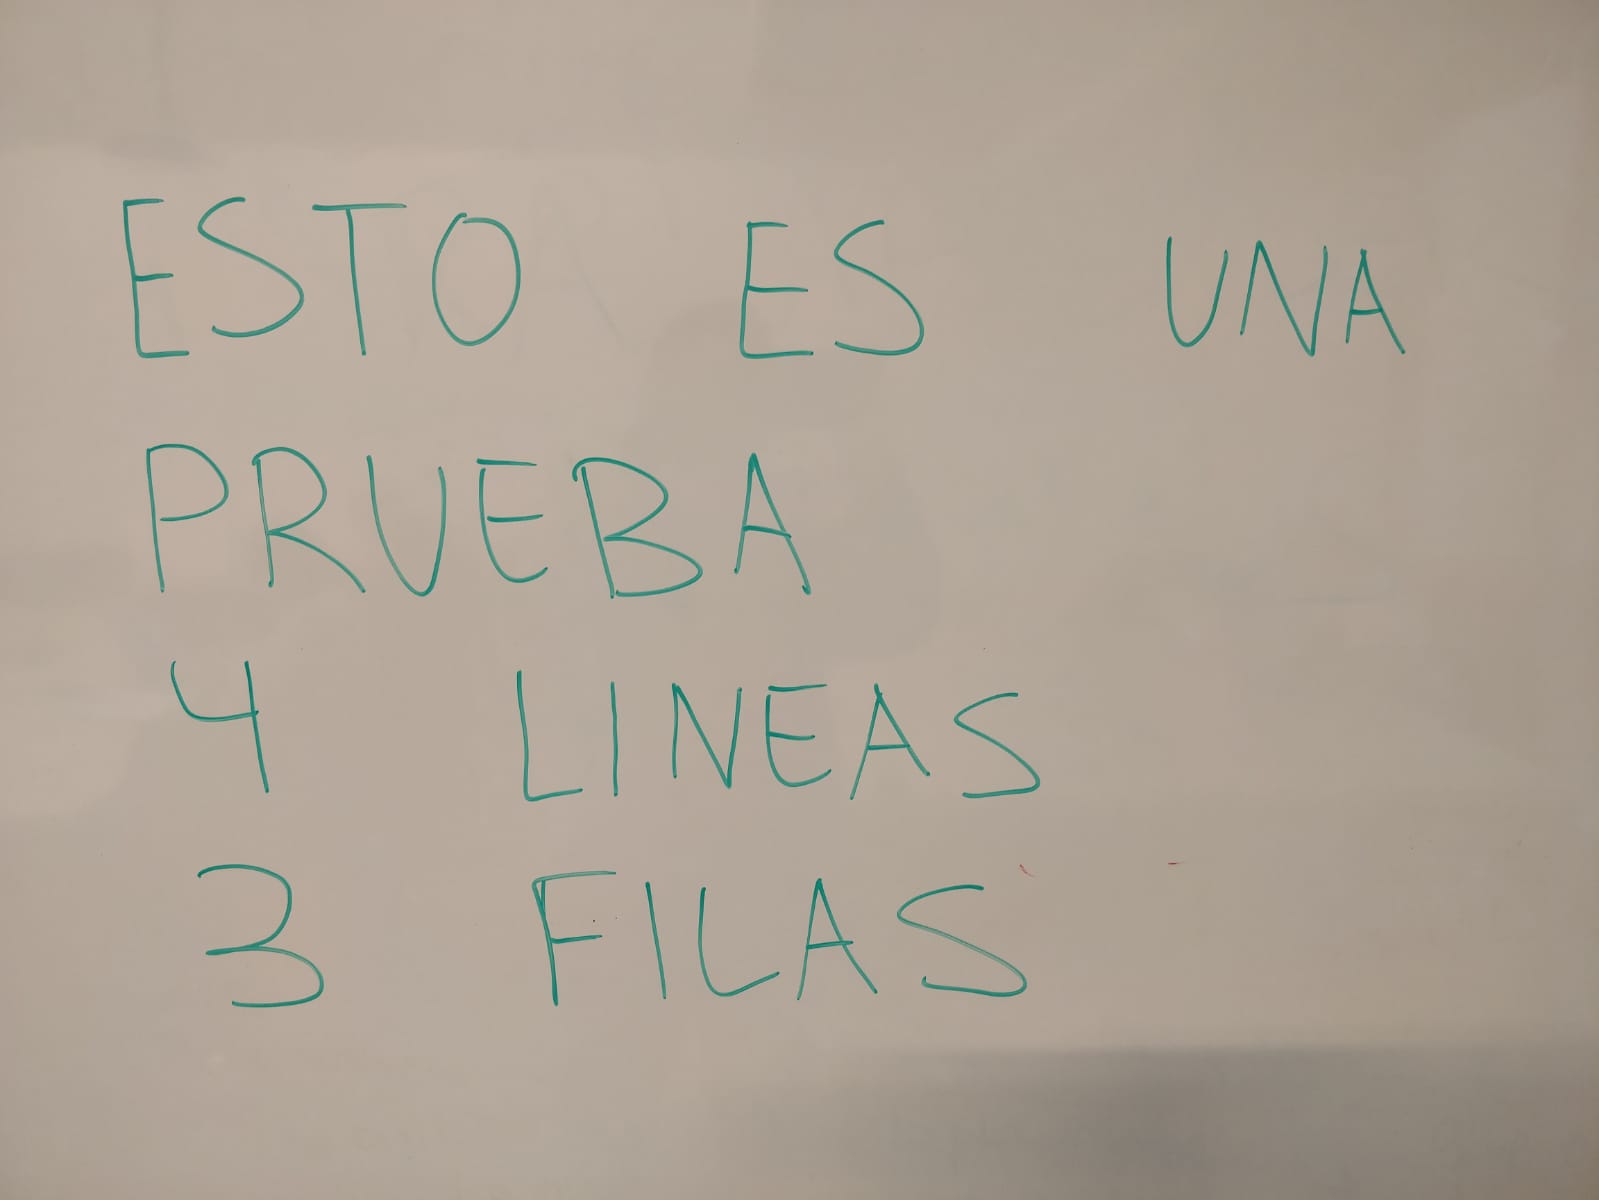 ESTO ES UNA
PRUEBA
4 LINEAS
3 FILAS